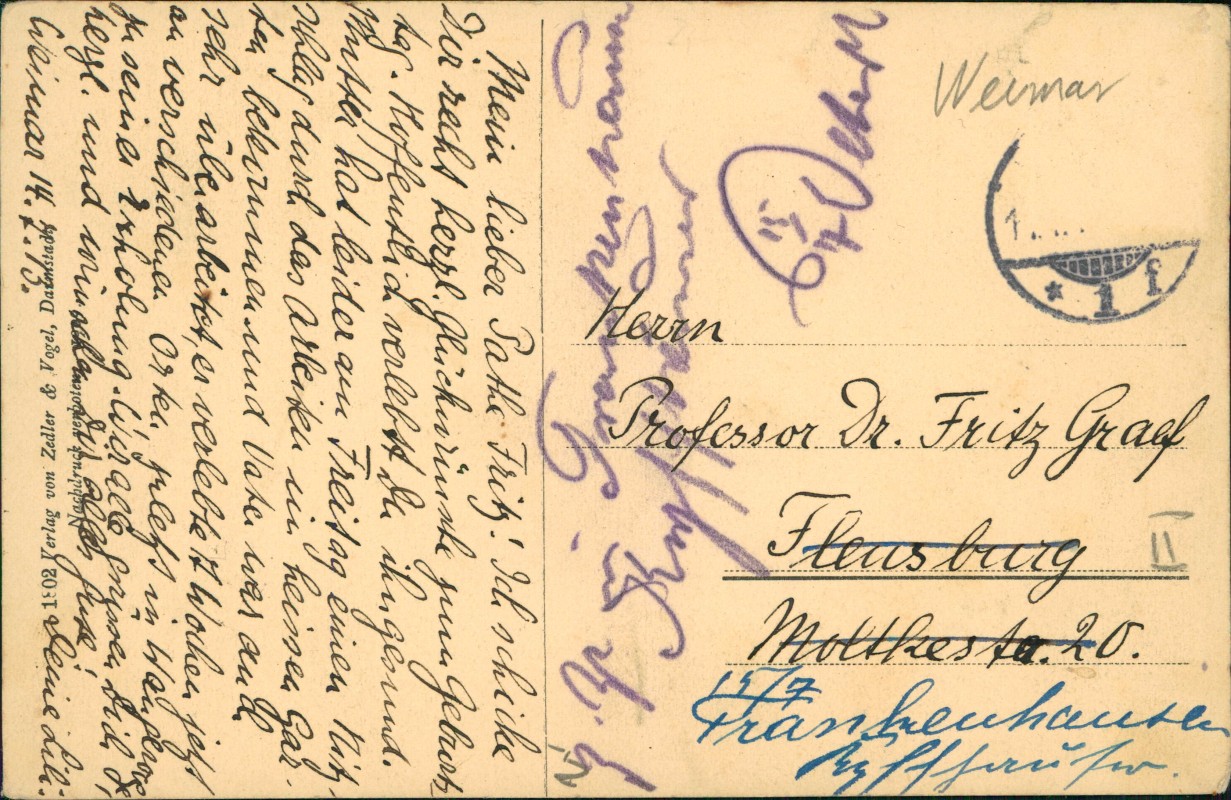 Mein lieber Pathe Fritz! Ich schicke
Dir recht herzl. Glückwünsche zum Geburts
tag. Hoffentlich verlebst Du ihn gesund.
Mutter hat leider am Freitag einen Hitz-
schlag durch das Arbeiten im heissen Gar-
ten bekommen und Vater war auch
sehr überarbeitet, er verlebte 3 Wochen jetzt
an verschiedenen Orten, jetzt in
zu seiner Erholung. Wir alle grüssen Dich
herzl. und wünschen Dir alles Gute!
Weimar 14.7.13. Deine Lili.
Nachdruck verboten
Verlag von Zedler & Vogel, Darmstadt
Weimar
* 1 f
Herrn
Professor Dr. Fritz Graef
Flensburg
Moltkestr. 20.
II
15/7
Frankenhausen
Kyffhäuser.